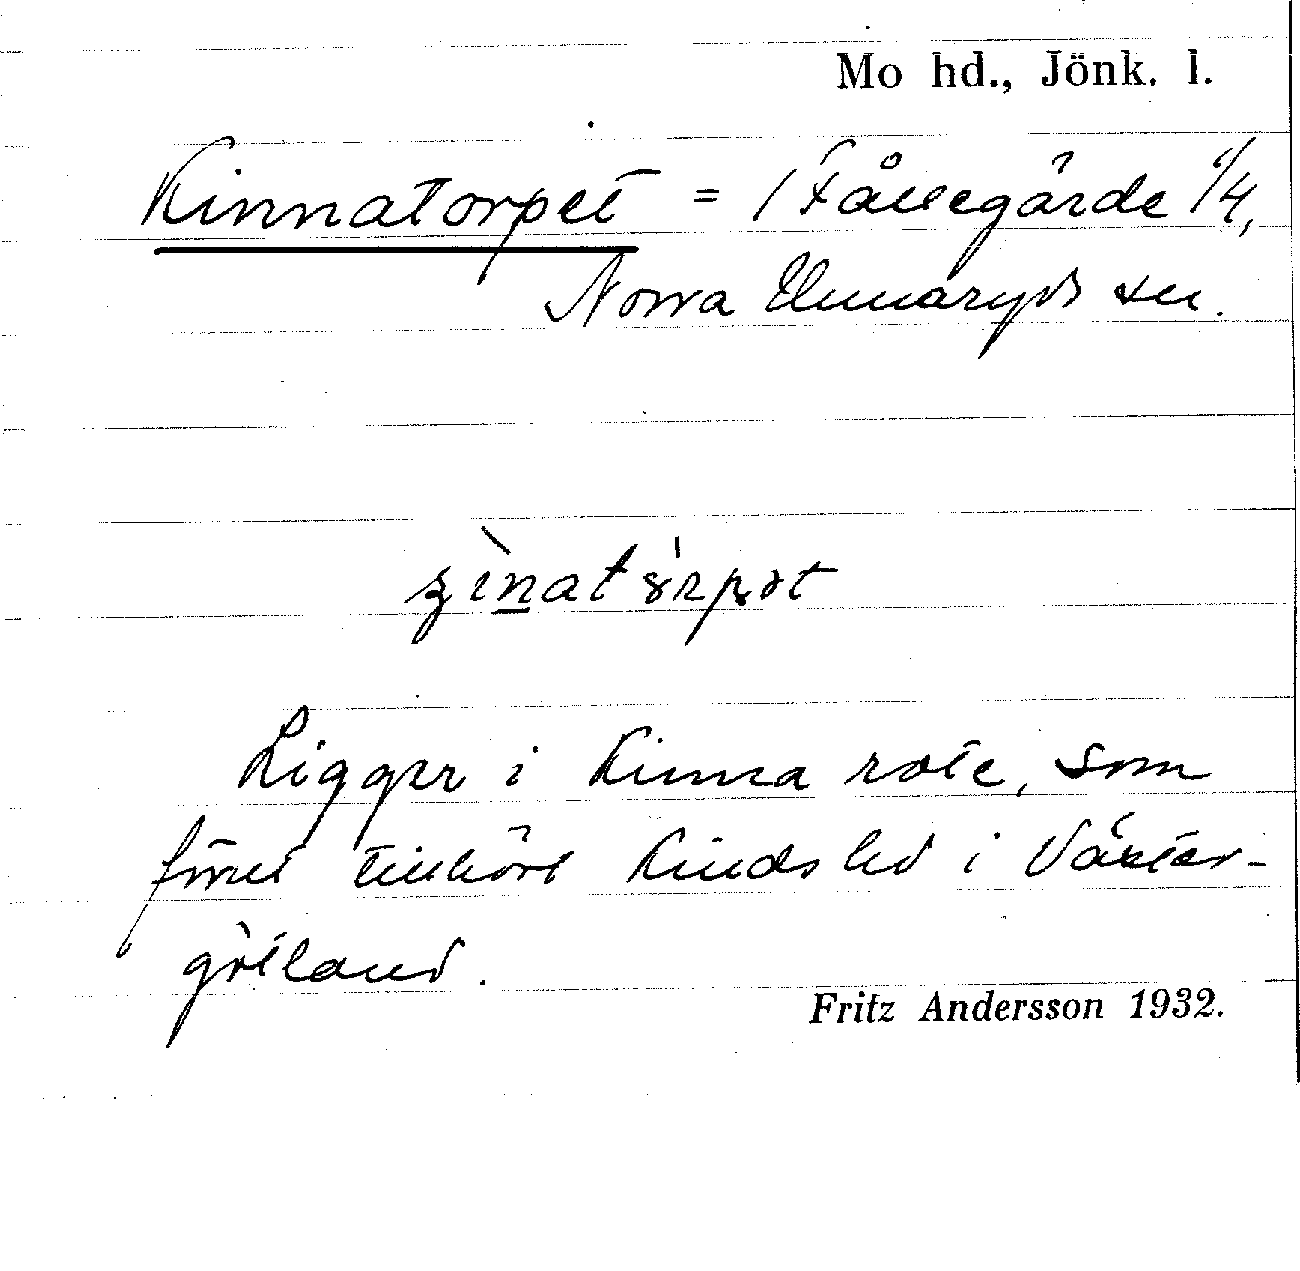 Mo hd., Jönk. l.
Kinnatorpet = / Fållegärde 1/4,
Norra Unnaryds sn.
Ligger i Kinna rote, som
förut tillhört Kinds hd i Väster-
götland.
Fritz Andersson 1932.